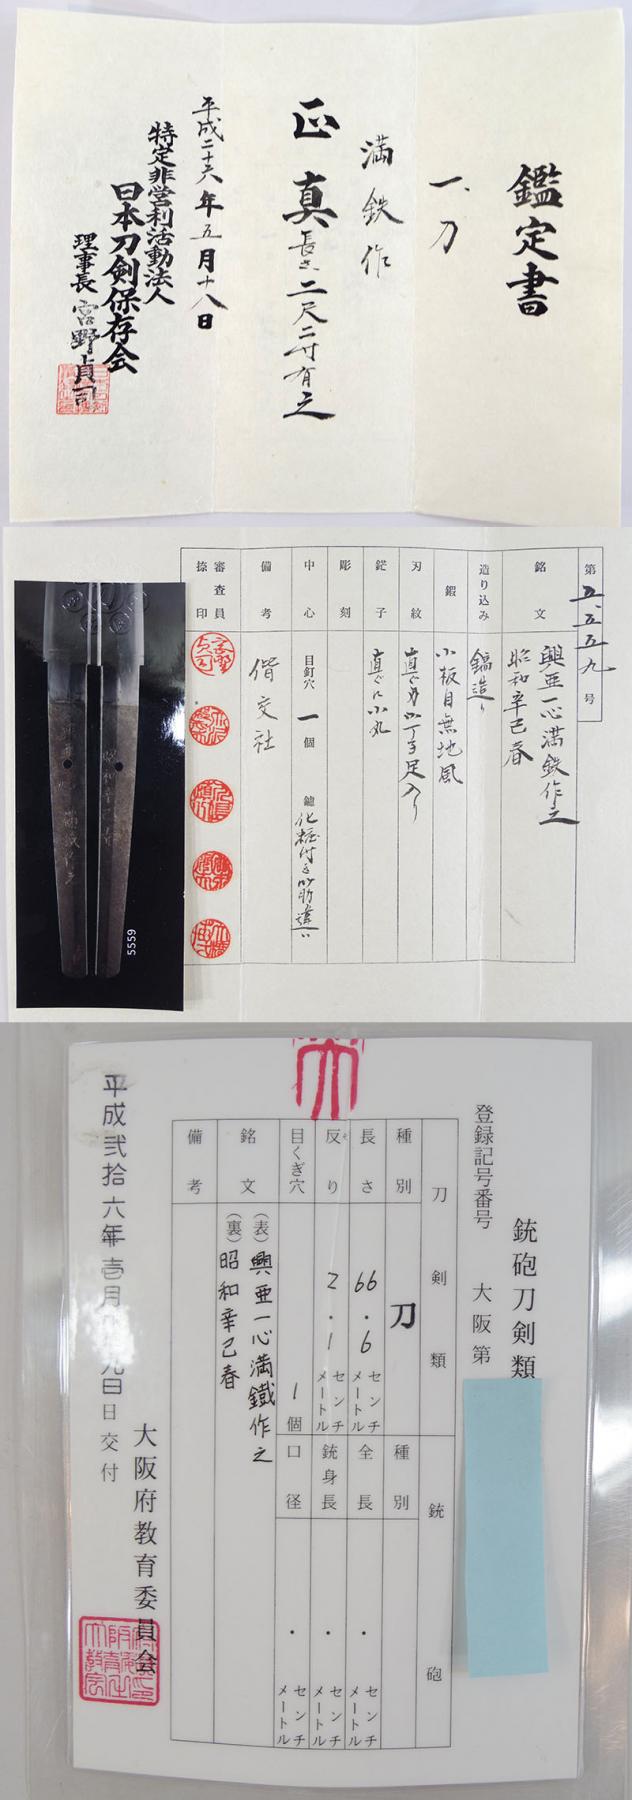 鑑定書
一、刀
満鉄作
正真 長さ、二尺二寸有之
平成二十六年五月十八日
特定非営利活動法人
日本刀剣保存会
理事長 宮野貞司
第五、五五九号
銘文 興亜一心満鉄作之
昭和辛巳春
造り込み 鎬造り
鍜 小板目無地風
刃紋 直ぐ刃小丁子足入り
鋩子 直ぐに小丸
彫刻
中心 目釘穴 一個 鑢 化粧付き山筋違い
備考 偕交社
審査員捺印
5559
銃砲刀剣類
登録記号番号 大阪第
刀剣類 銃砲
種別 刀 種別
長さ 66.6 センチメートル 全長 . センチメートル
反り 2.1 センチメートル 銃身長 . センチメートル
目くぎ穴 1個 口径 . センチメートル
銘文 (表)興亜一心満鐵作之
(裏)昭和辛己春
備考
平成弐拾六年壱月 九日 日交付
大阪府教育委員会